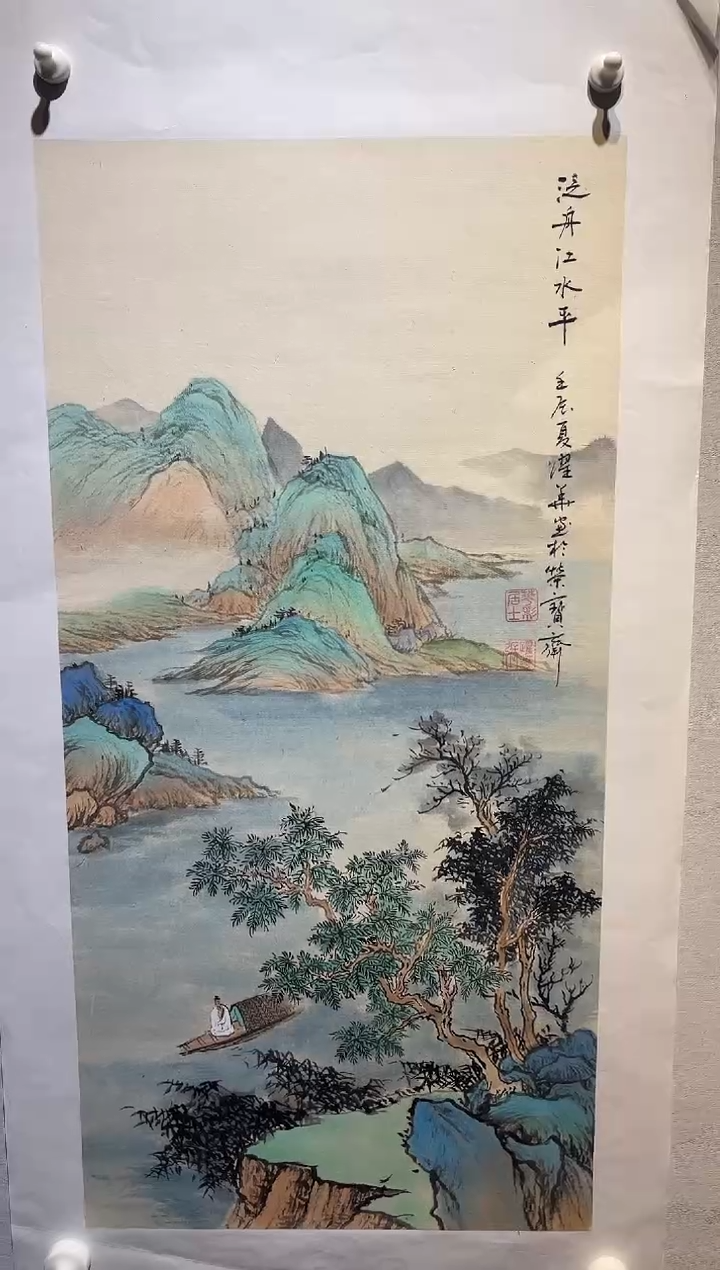 泛舟江水平 壬辰夏躍華畫於榮寶齋
居士